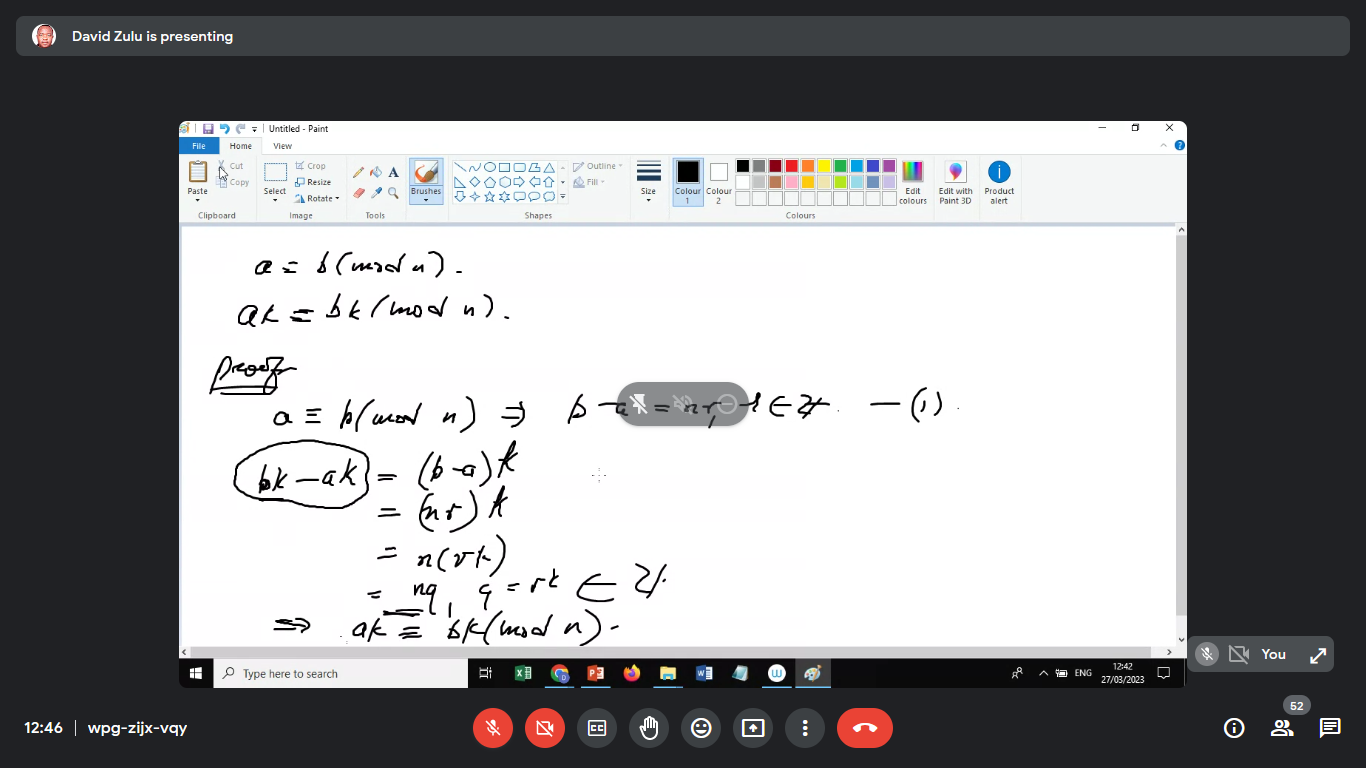 David Zulu is presenting
Untitled - Paint
File Home View
Paste Cut Copy Clipboard
Select Crop Resize Rotate Image
Tools
Brushes
Shapes
Outline Fill
Size
Colour 1 Colour 2
Edit colours
Colours
Edit with Paint 3D
Product alert
a ≡ b(mod n).
ak ≡ bk(mod n).
Proof
a ≡ b(mod n) ⇒ b - a = nr, r ∈ ℤ. — (1).
bk - ak = (b-a)k
= (nr)k
= n(rk)
= nq, q = rk ∈ ℤ.
⇒ ak ≡ bk(mod n).
You
Type here to search
ENG
12:42
27/03/2023
52
12:46 | wpg-zijx-vqy